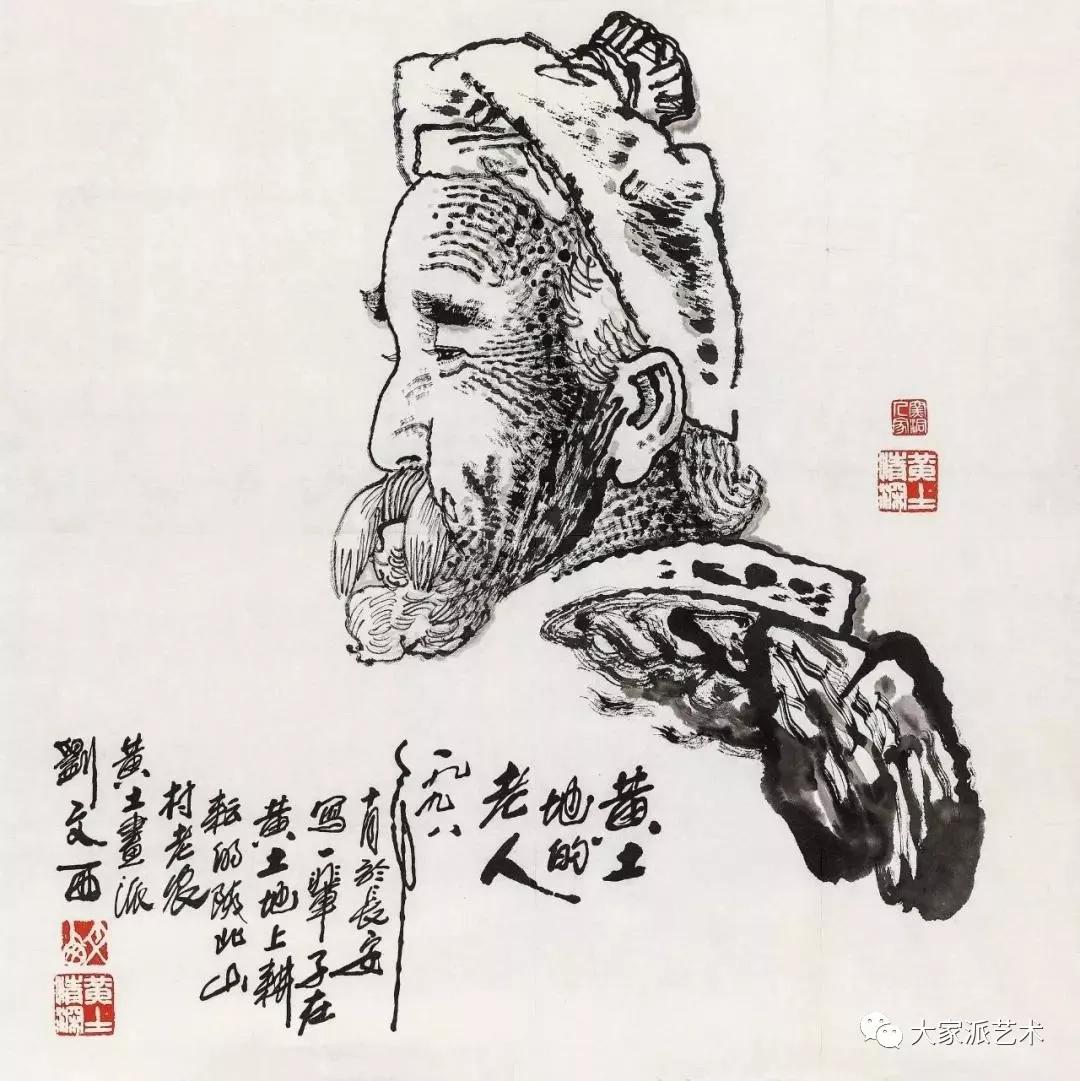 黄土
地的
老人
一九九八
年
十月於長安
寫一輩子在
黄土地上耕
耘的陕北山
村老农
黄土畫派
劉文西
黄土情深
黄土情深
大家派艺术